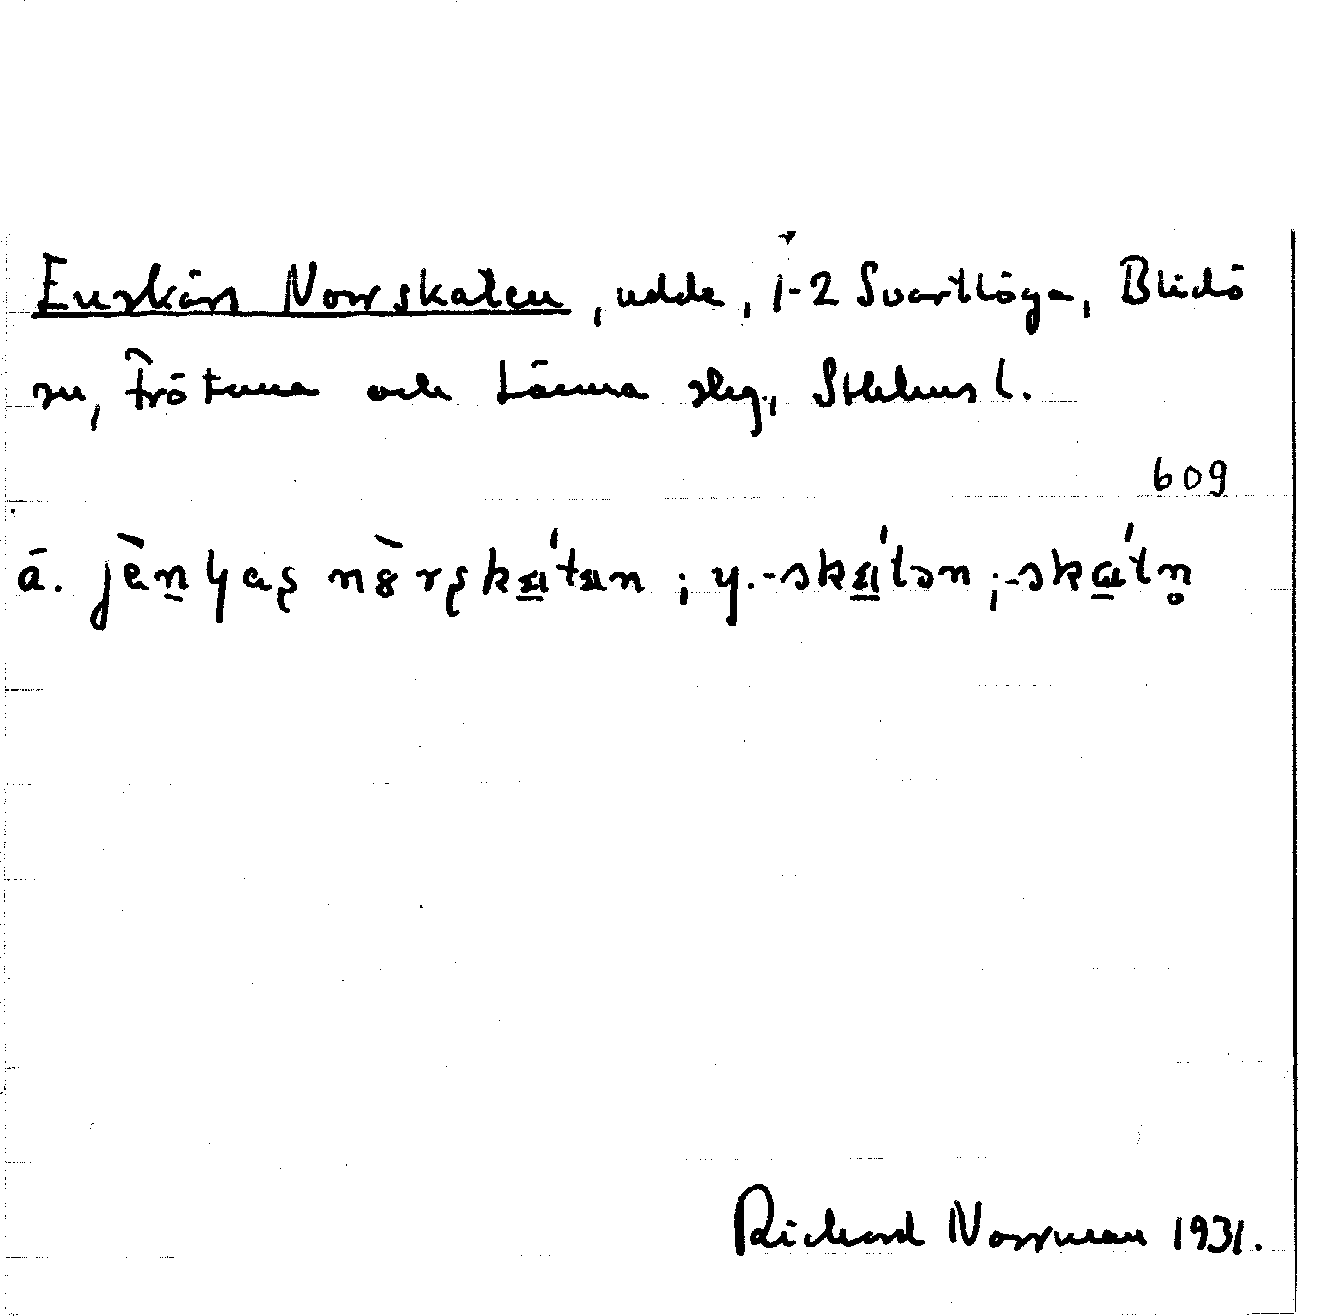 Enskärs Norrskaten, udde, 1-2 Svartlöga, Blidö
sn, Frötuna och Länna skg, Sthlms l.
609
ä. jènɥaʂ nòrʂka̲ʹtan ; y. -ska̲ʹtən ; -ska̲ʹtn̥
Richard Norrman 1931.